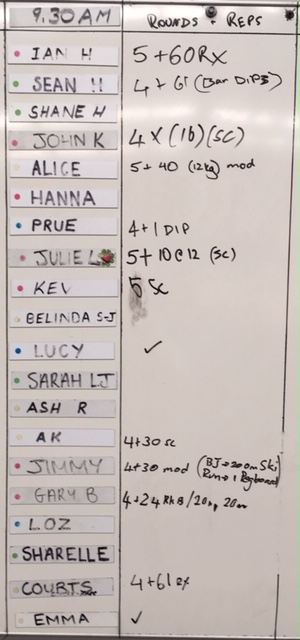 9.30AM ROUNDS + REPS
IAN H 5+60Rx
SEAN H 4+61 (Bar DIPS)
SHANE H
JOHN K 4 x (16) (SC)
ALICE 5+40 (12kg) mod
HANNA
PRUE 4+1 DIP
JULIE L 5+10@12 (SC)
KEV 5 SC
BELINDA S-J
LUCY ✓
SARAH LJ
ASH R
AK 4+30 SC
JIMMY 4+30 mod (BJ→200m Ski
Run→
GARY B 4+24
LOZ
SHARELLE
COURTS 4+61 Rx
EMMA ✓